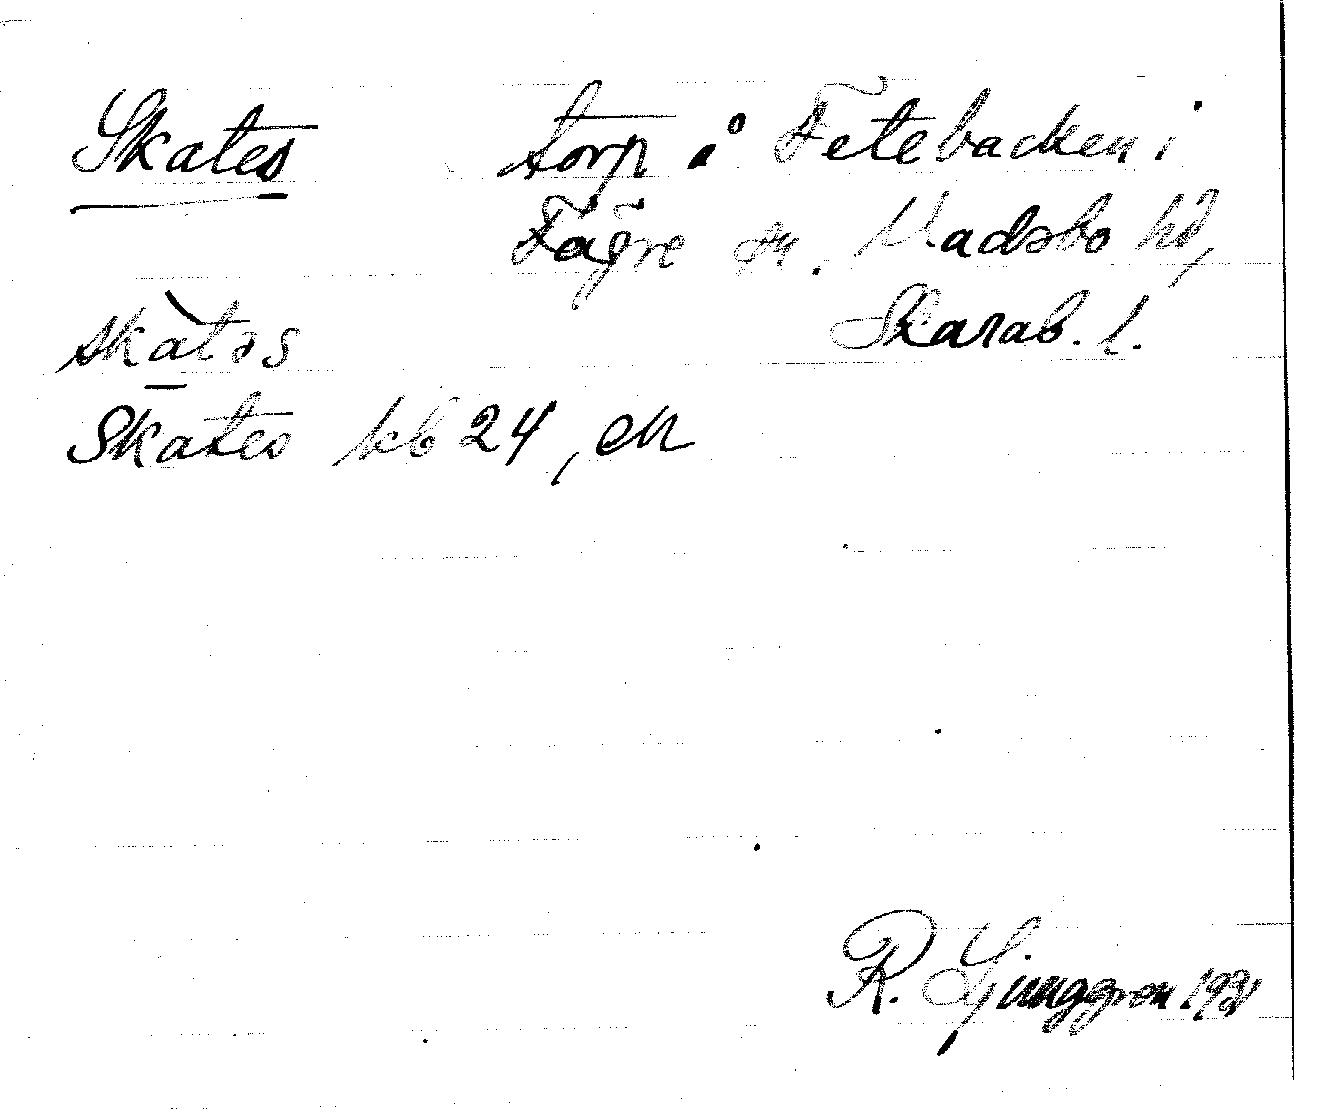 Skates torp å Fetebacken i
Fägre sn. Vadsbo hd,
skàtəs Skarab. l.
Skates kb 24, en
R. Ljunggren 1931